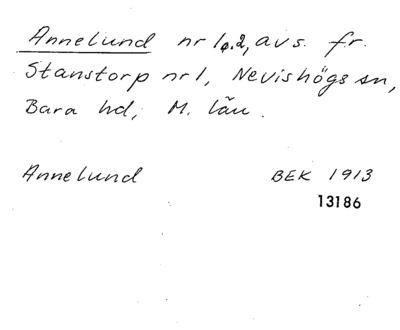 Annelund nr 1 o. 2, avs. fr.
Stanstorp nr 1, Nevishögs sn,
Bara hd, M. län.
Annelund BEK 1913
13186